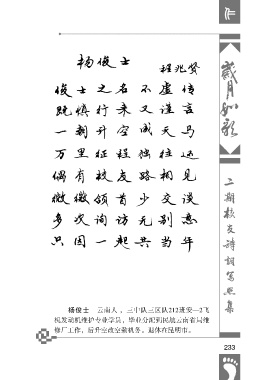 作
岁月如歌
二期校友诗词写照集
杨俊士
程兆贤
俊士之名不虚传
既慎行来又谨言
一朝升空成天马
万里征程独往还
偶有校友路相见
微微颔首少交谈
多次询访无别意
只因一起共当年
杨俊士 云南人。三中队三区队212班安—2飞
机发动机维护专业学员,毕业分配到民航云南省局维
修厂工作,后升空改空勤机务。退休在昆明市。
233